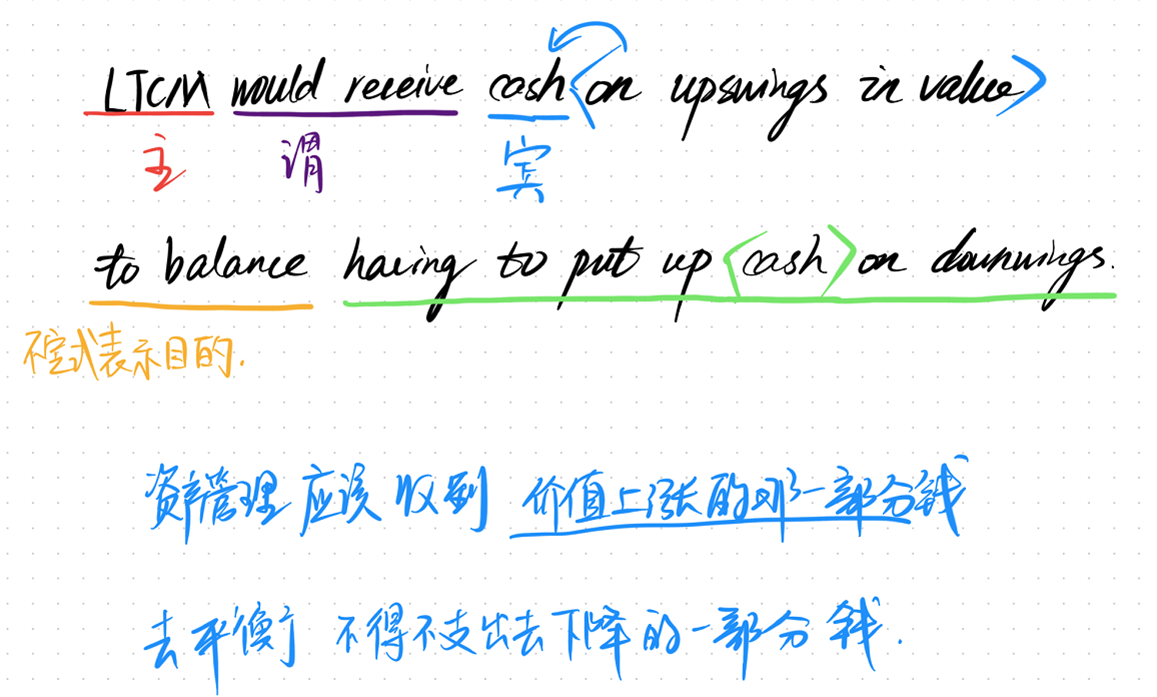 LTCM would receive cash <on upswings in value>
主 谓 宾
to balance having to put up <cash> on downwings.
不定式表示目的.
资产管理 应该 收到 价值上涨的那一部分钱
去平衡 不得不支出去下降的一部分钱.